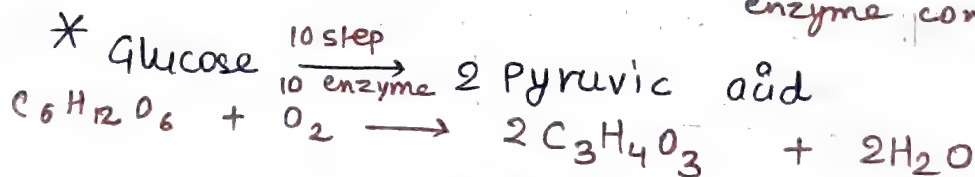 enzyme con
* Glucose 10 step → 10 enzyme 2 Pyruvic acid
C6H12O6 + O2 → 2C3H4O3 + 2H2O